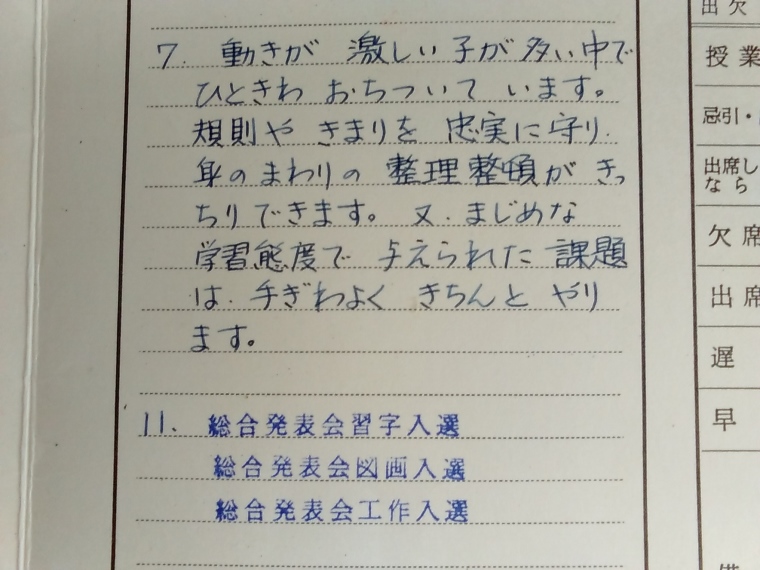 7. 動きが 激しい子が多い中で
ひときわ おちついて います。
規則や きまりを 忠実に守り.
身のまわりの 整理整頓が きっ
ちりできます。 又.まじめな
学習態度で 与えられた 課題
は.手ぎわよく きちんと やり
ます。
11. 総合発表会習字入選
総合発表会図画入選
総合発表会工作入選
出欠
授業
忌引・
出席し
なら
欠席
出席
遅
早